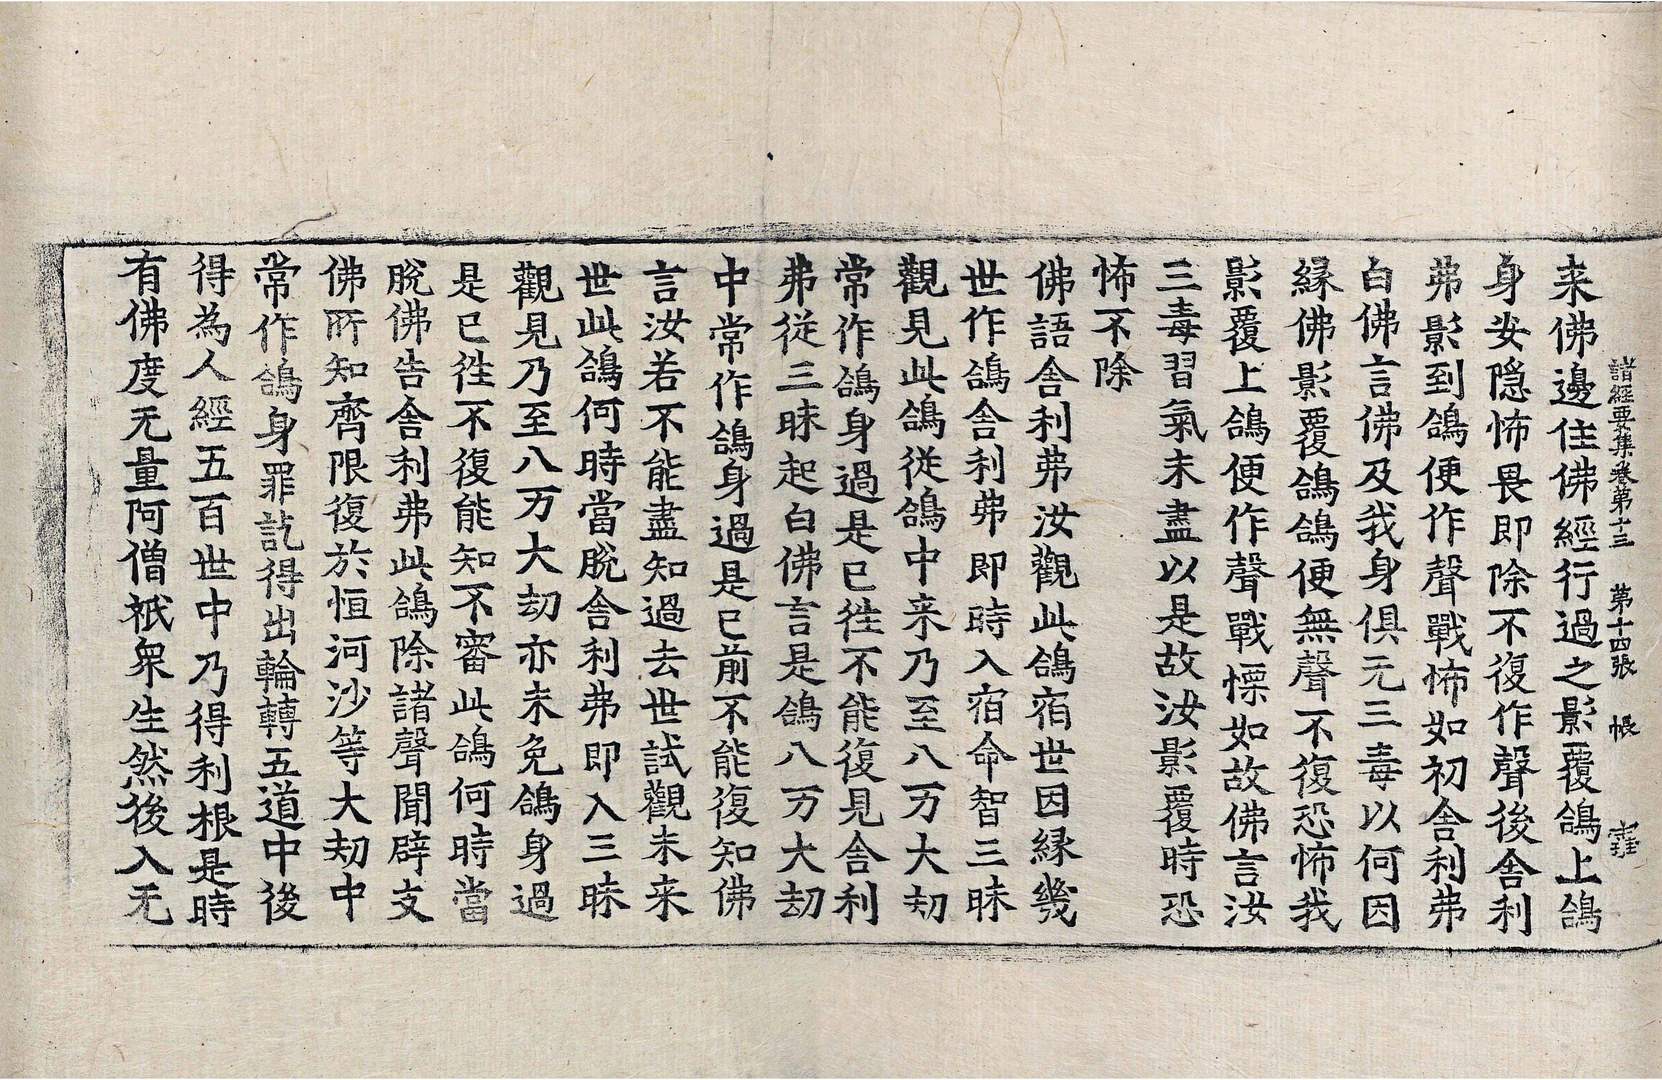 諸經要集卷第十三 第十四張 帳
来佛邊住佛經行過之影覆鴿上鴿
身安隱怖畏即除不復作聲後舍利
弗影到鴿便作聲戰怖如初舍利弗
白佛言佛及我身俱无三毒以何因
縁佛影覆鴿鴿便無聲不復恐怖我
影覆上鴿便作聲戰慄如故佛言汝
三毒習氣未盡以是故汝影覆時恐
怖不除
佛語舍利弗汝觀此鴿宿世因縁幾
世作鴿舍利弗即時入宿命智三昧
觀見此鴿從鴿中来乃至八万大劫
常作鴿身過是已徃不能復見舍利
弗從三昧起白佛言是鴿八万大劫
中常作鴿身過是已前不能復知佛
言汝若不能盡知過去世試觀未来
世此鴿何時當脫舍利弗即入三昧
觀見乃至八万大劫亦未免鴿身過
是已徃不復能知不審此鴿何時當
脫佛告舍利弗此鴿除諸聲聞辟支
佛所知齊限復於恒河沙等大劫中
常作鴿身罪訖得出輪轉五道中後
得為人經五百世中乃得利根是時
有佛度无量阿僧祇衆生然後入无